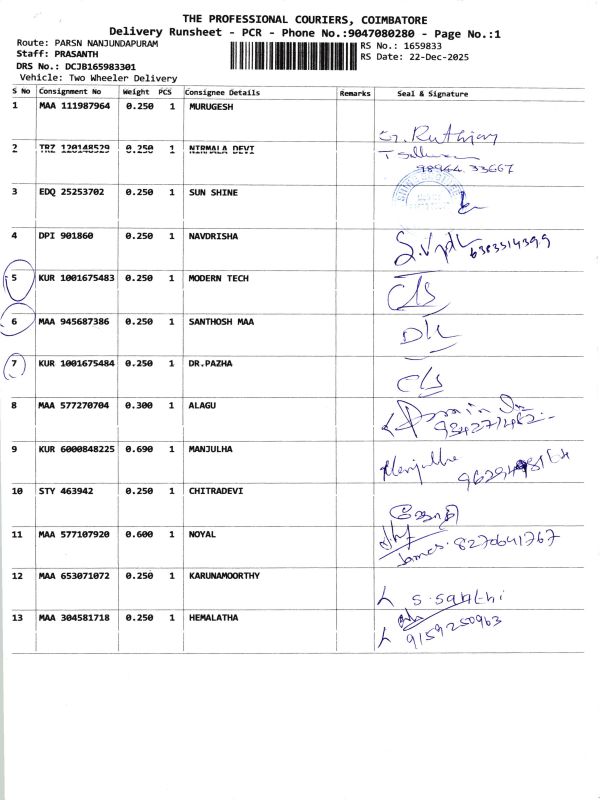 THE PROFESSIONAL COURIERS, COIMBATORE
Delivery Runsheet - PCR - Phone No.:9047080280 - Page No.:1
Route: PARSN NANJUNDAPURAM
Staff: PRASANTH
DRS No.: DCJB165983301
Vehicle: Two Wheeler Delivery
RS No.: 1659833
RS Date: 22-Dec-2025
S No Consignment No Weight PCS Consignee Details Remarks Seal & Signature
1 MAA 111987964 0.250 1 MURUGESH
G. Ruthijay
2 TRZ 120148529 0.250 1 NIRMALA DEVI
98944 33667
3 EDQ 25253702 0.250 1 SUN SHINE
4 DPI 901860 0.250 1 NAVDRISHA
6383314399
5 KUR 1001675483 0.250 1 MODERN TECH
C/S
6 MAA 945687386 0.250 1 SANTHOSH MAA
D/L
7 KUR 1001675484 0.250 1 DR.PAZHA
C/S
8 MAA 577270704 0.300 1 ALAGU
9 KUR 6000848225 0.690 1 MANJULHA
Manjulha
10 STY 463942 0.250 1 CHITRADEVI
11 MAA 577107920 0.600 1 NOYAL
James. 8270641767
12 MAA 653071072 0.250 1 KARUNAMOORTHY
S. Sakthi
13 MAA 304581718 0.250 1 HEMALATHA
9159250963